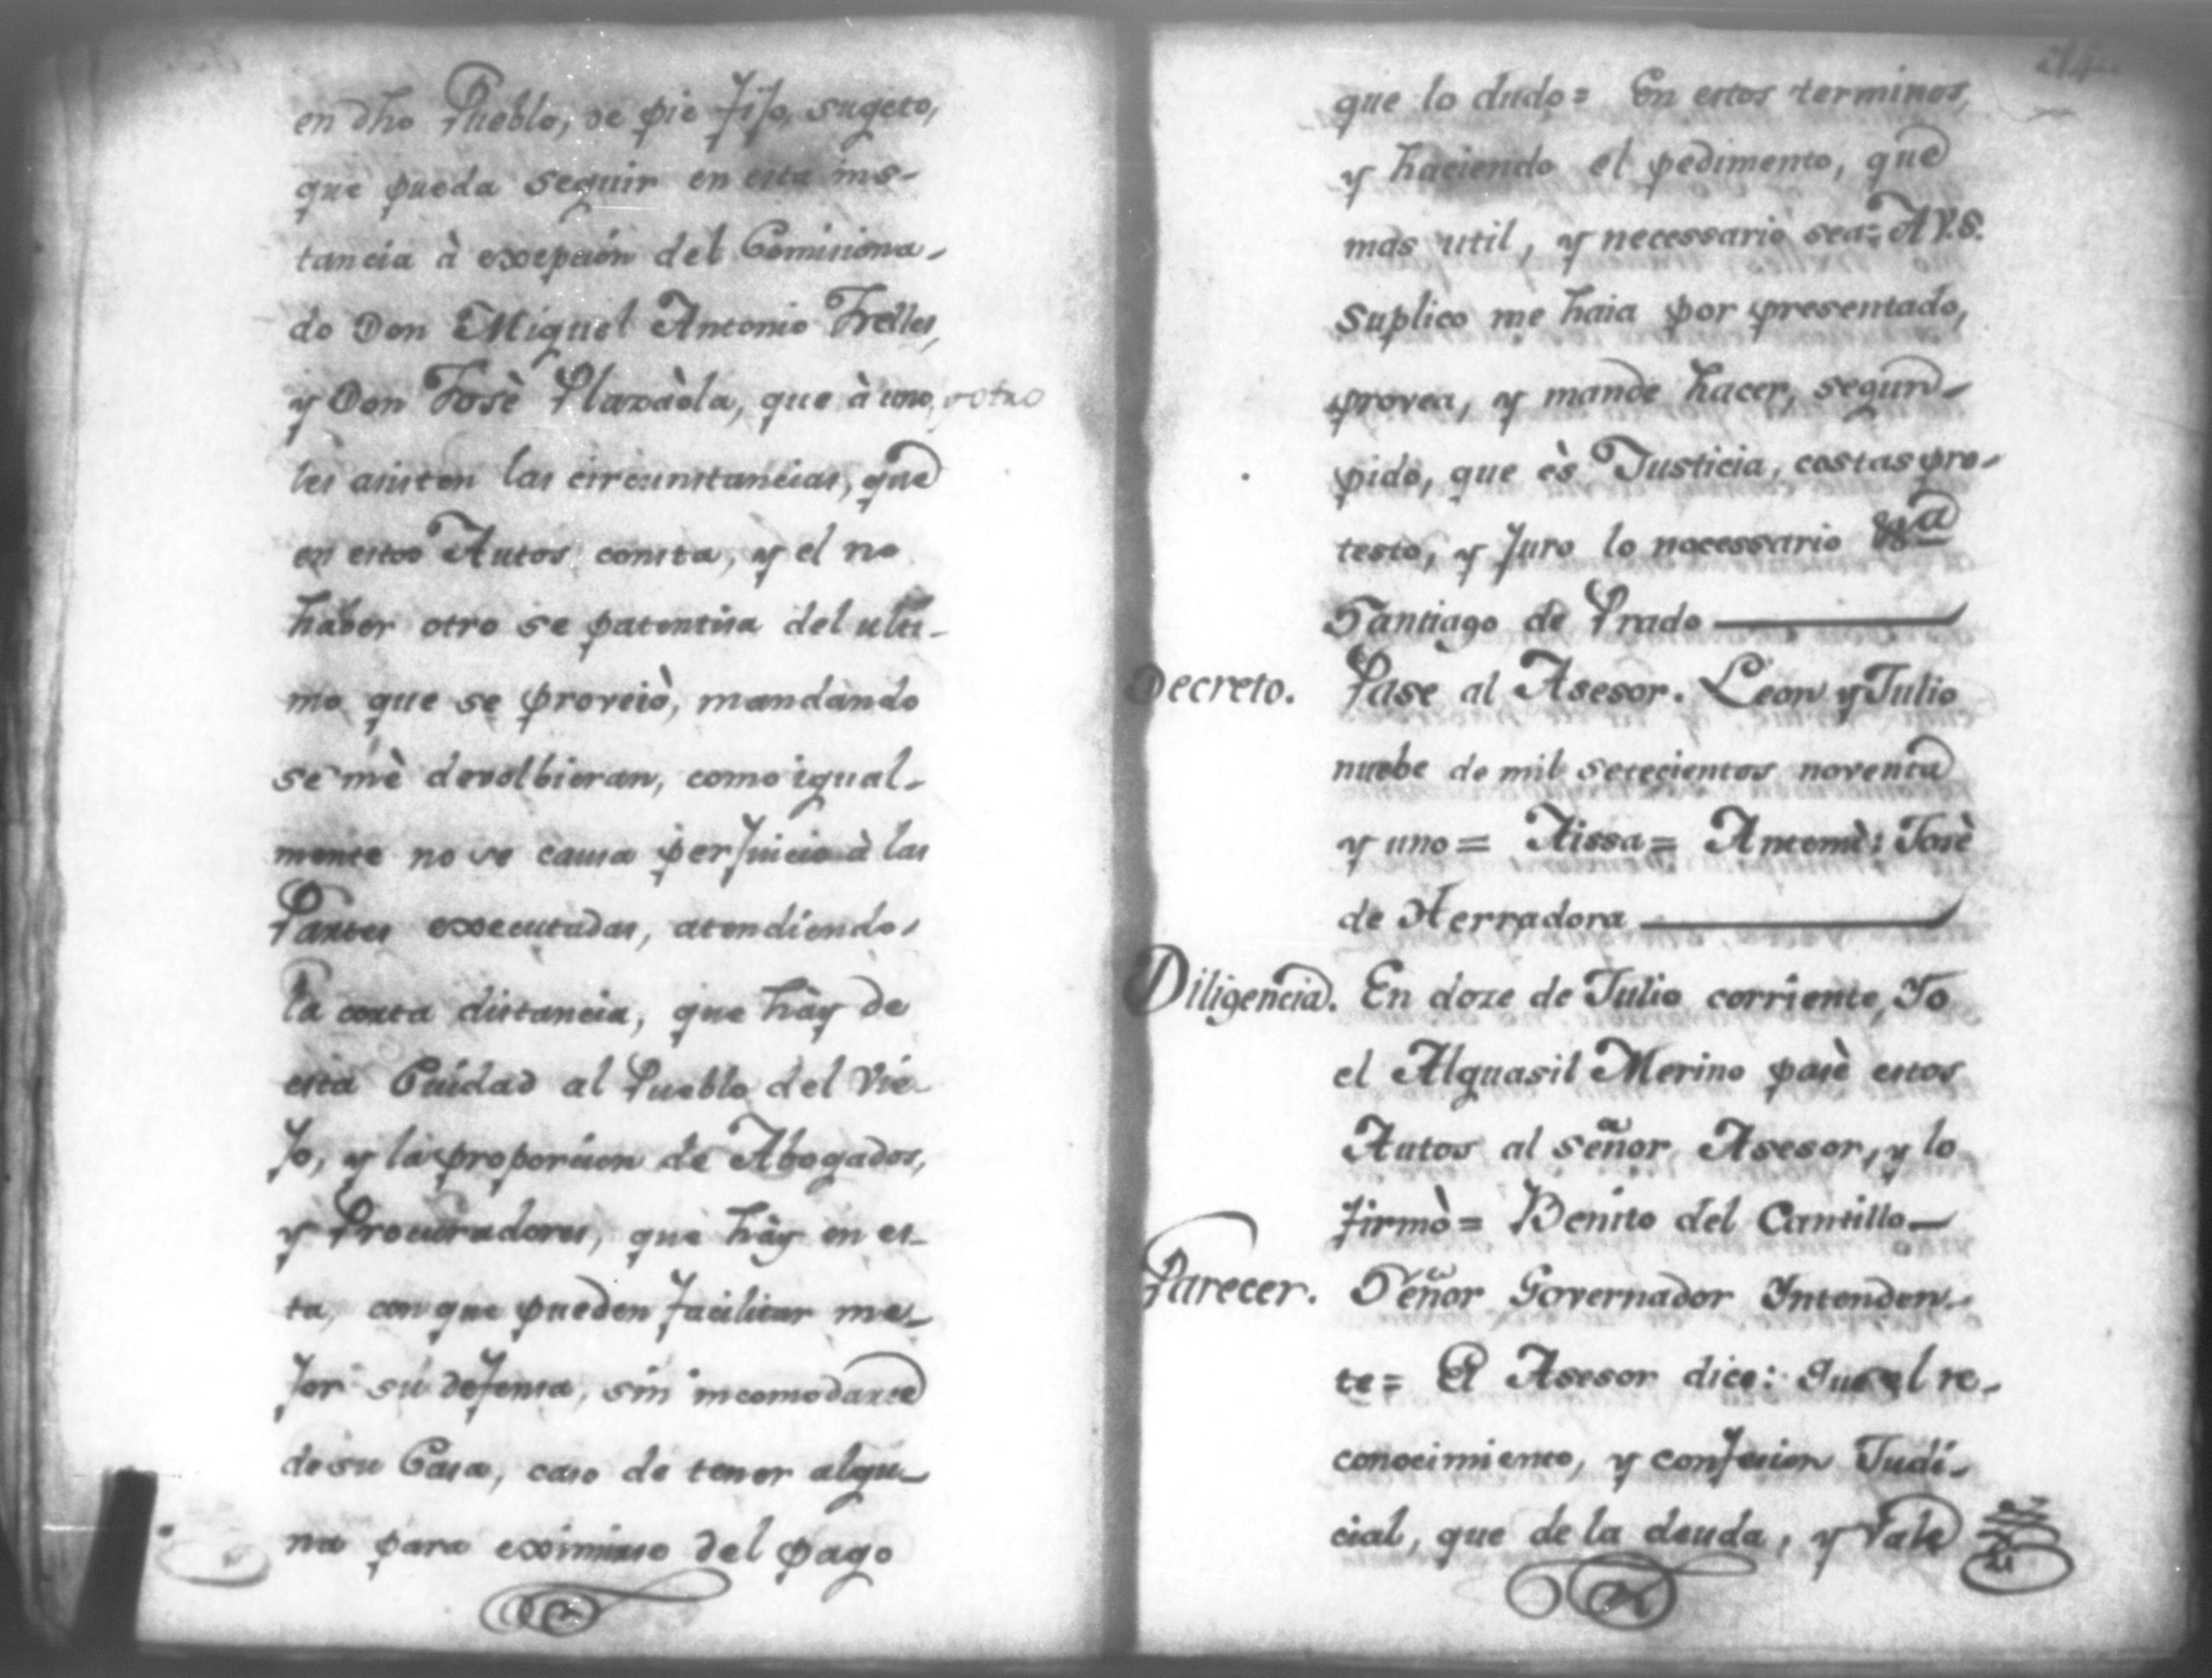 en dho Pueblo, de pie fijo, sugeto,
que pueda seguir en esta ins-
tancia à excepcion del Comisiona-
do Don Miguel Antonio Trelles,
y Don Josè Plazàola, que à uno, y otro
les asisten las circunstancias, que
en estos Autos consta, y el no
haber otro se patentisa del ulti-
mo que se proveiò, mandando
se mè devolbieran, como igual-
mente no se causa perjuicio à las
Partes executadas, atendiendo
la corta distancia, que hày de
esta Ciudad al Pueblo del Vie-
jo, y la proporcion de Abogados,
y Procuradores, que hày en es-
ta, con que pueden facilitar me-
jor su defensa, sin incomodarse
de su Casa, caso de tener algu-
na para eximirse del pago
que lo dudo= En estos terminos,
y haciendo el pedimento, que
mas util, y necessario sea= A V.S.
suplico me haia por presentado,
provea, y mande hacer, segun
pido, que ès Justicia, costas pro-
testo, y juro lo necessario &a
Santiago de Prado
Decreto. Pase al Asesor. Leon y Julio
nuebe de mil setecientos noventa
y uno= Aissa= Antemi: Josè
de Herradora
Diligencia. En doze de Julio corriente, Yo
el Alguasil Merino pasè estos
Autos al señor Asesor, y lo
firmò= Benito del Cantillo
Parecer. Señor Governador Intenden-
te= El Asesor dice: Que el re-
conocimiento, y confesion Judi-
cial, que de la deuda, y Vale